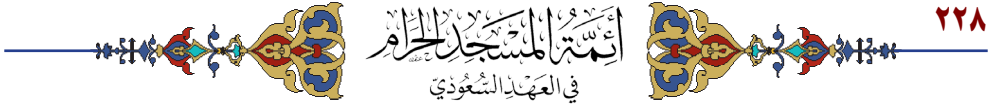 ٢٢٨
أَئِمَّةُ المَسْجِدِ الحَرَامِ
فِي العَهْدِ السُّعُودِيّ